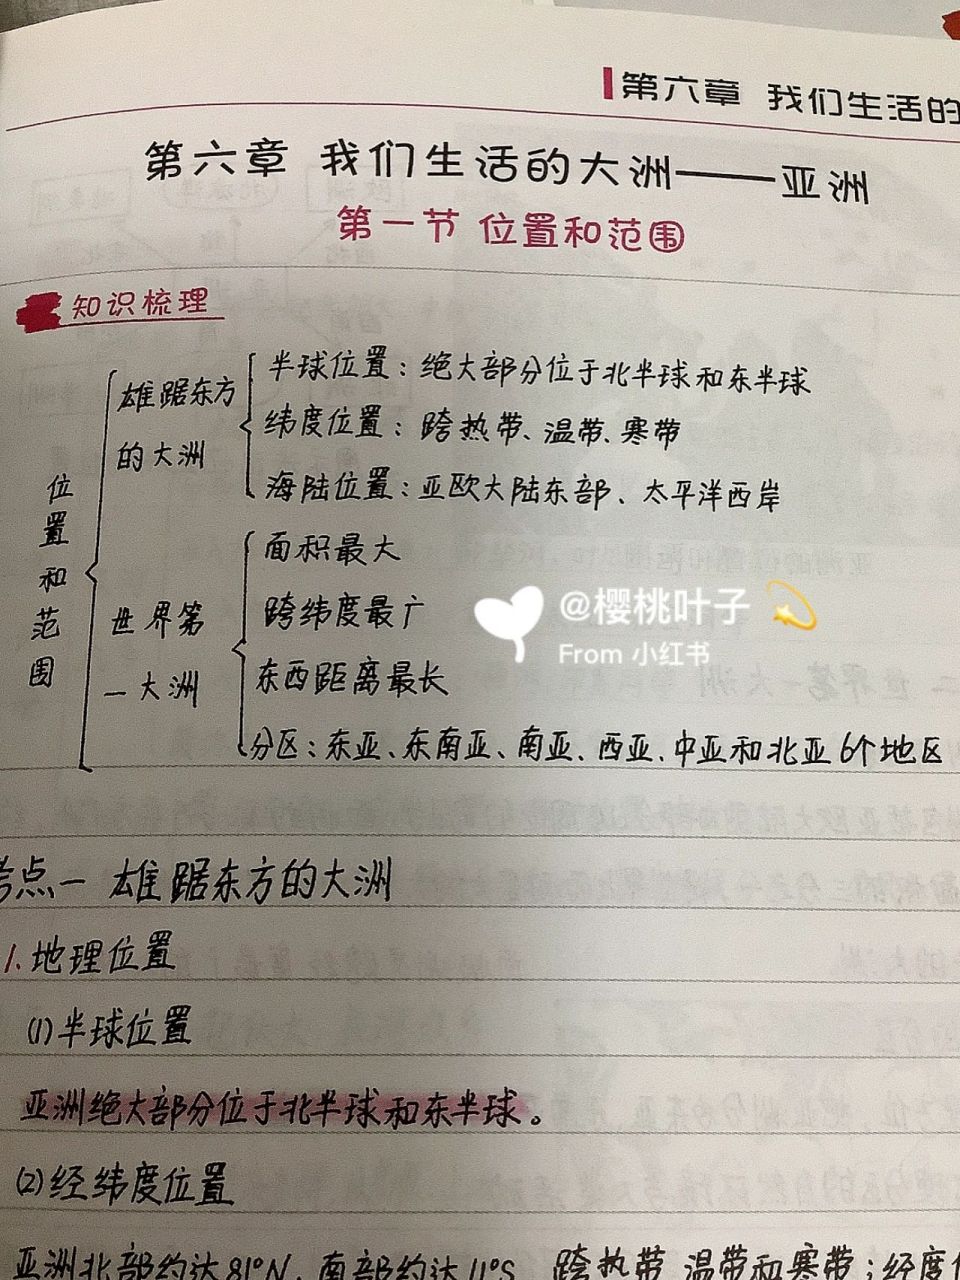 第六章 我们生活的
第六章 我们生活的大洲——亚洲
第一节 位置和范围
知识梳理
位置和范围
雄踞东方的大洲
半球位置：绝大部分位于北半球和东半球
纬度位置：跨热带、温带、寒带
海陆位置：亚欧大陆东部、太平洋西岸
世界第一大洲
面积最大
跨纬度最广
东西距离最长
分区：东亚、东南亚、南亚、西亚、中亚和北亚6个地区
@樱桃叶子
From 小红书
考点一 雄踞东方的大洲
1.地理位置
(1)半球位置
亚洲绝大部分位于北半球和东半球。
(2)经纬度位置
亚洲北部约达81°N，南部约达11°S，跨热带、温带和寒带；经度